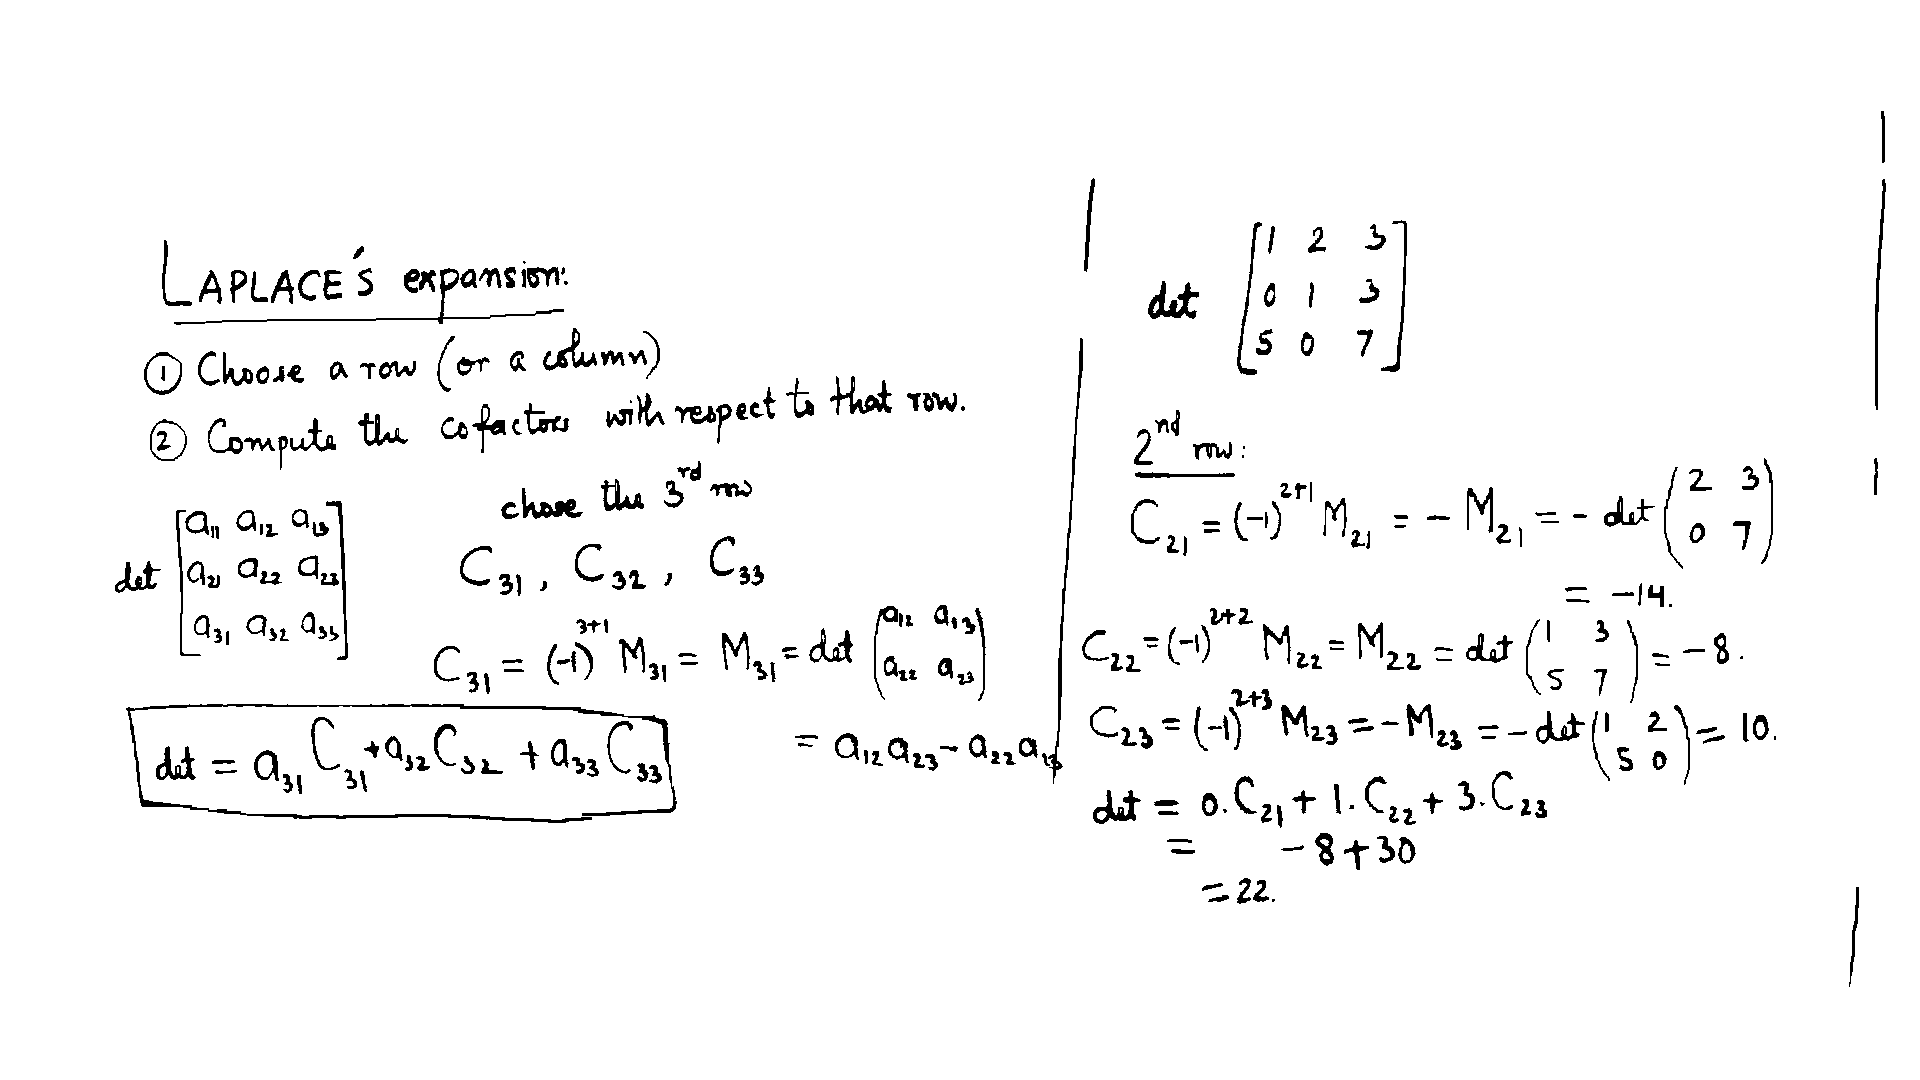 LAPLACE'S expansion:
① Choose a row (or a column)
② Compute the cofactors with respect to that row.
chose the 3rd row
det [a11 a12 a13
a21 a22 a23
a31 a32 a33]
C31, C32, C33
C31 = (-1)^3+1 M31 = M31 = det (a12 a13
a22 a23)
= a12 a23 - a22 a13
det = a31 C31 + a32 C32 + a33 C33
det [1 2 3
0 1 3
5 0 7]
2nd row:
C21 = (-1)^2+1 M21 = - M21 = - det (2 3
0 7)
= -14.
C22 = (-1)^2+2 M22 = M22 = det (1 3
5 7) = -8.
C23 = (-1)^2+3 M23 = - M23 = - det (1 2
5 0) = 10.
det = 0. C21 + 1. C22 + 3. C23
= -8 + 30
= 22.